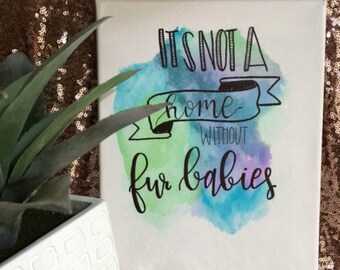 IT'S NOT A
home
WITHOUT
fur babies